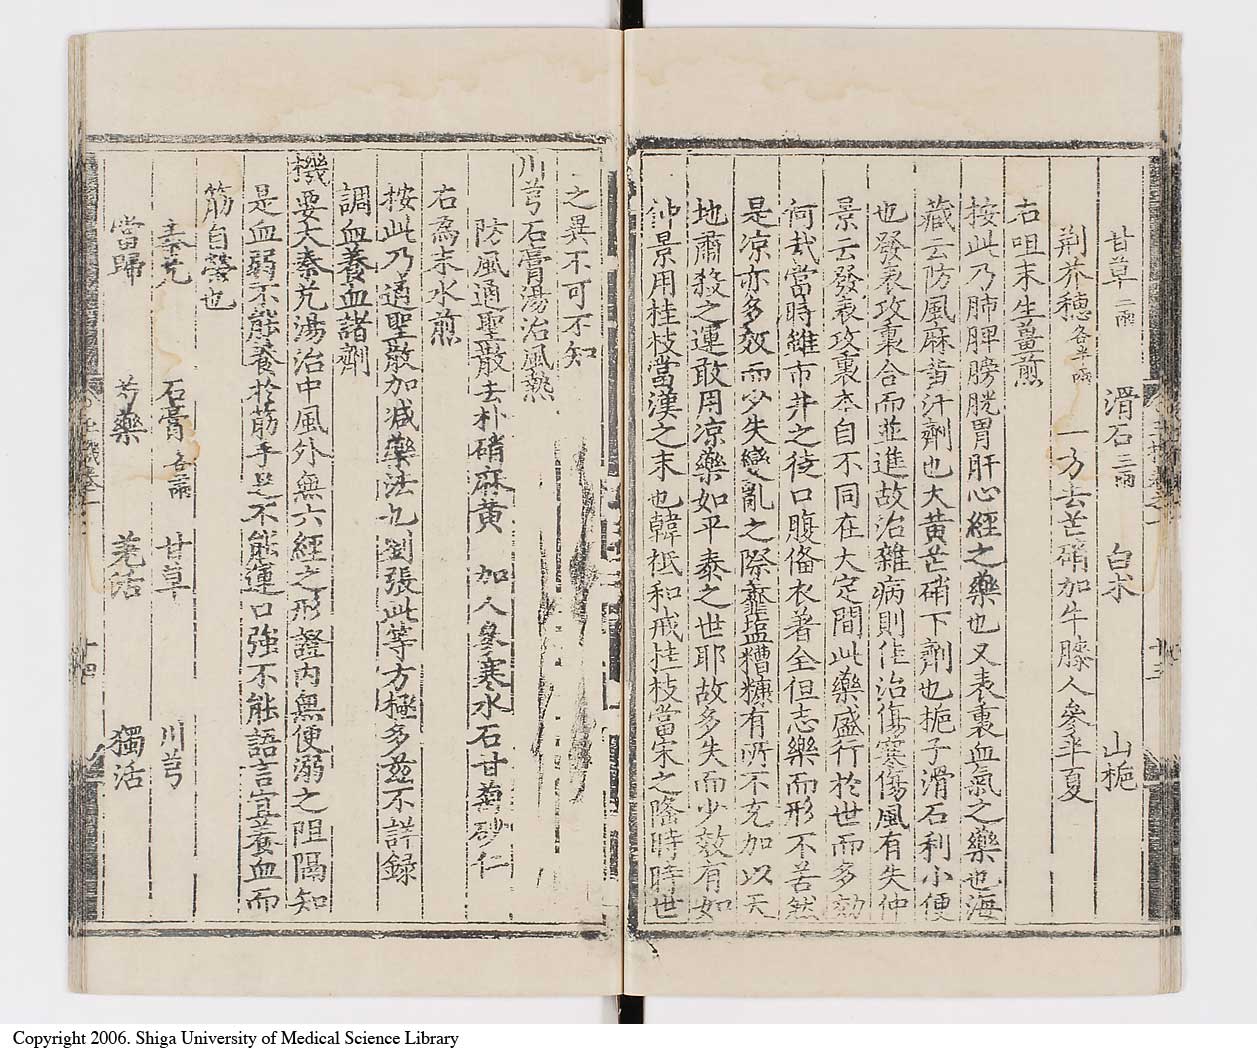 甘草二兩 滑石三兩 白朮 山梔
荆芥穗各半兩 一方去芒硝加牛膝人參半夏
右㕮末生薑煎
按此乃肺脾膀胱胃肝心經之藥也又表裏血氣之藥也海
藏云防風麻黃汗劑也大黃芒硝下劑也梔子滑石利小便
也發表攻裏合而並進故治雜病則佳治傷寒傷風有失仲
景云發表攻裏本自不同在大定間此藥盛行於世而多効
何哉當時雖市井之徒口腹俻衣著全但志樂而形不苦然
是凉亦多效而少失變亂之際虀塩糟糠有所不充加以天
地肅殺之運敢用凉藥如平泰之世耶故多失而少效有如
仲景用桂枝當漢之末也韓祗和戒桂枝當宋之隆時時世
之異不可不知
川芎石膏湯治風熱
防風通聖散去朴硝麻黃 加人參寒水石甘菊砂仁
右為末水煎
按此乃通聖散加减藥法也劉張此等方極多玆不詳録
調血養血諸劑
機要大秦艽湯治中風外無六經之形證內無便溺之阻隔知
是血弱不能養於筋手足不能運口強不能語言宜養血而
筋自榮也
秦艽 石膏各二兩 甘草 川芎
當歸 芍藥 羌活 獨活
Copyright 2006. Shiga University of Medical Science Library